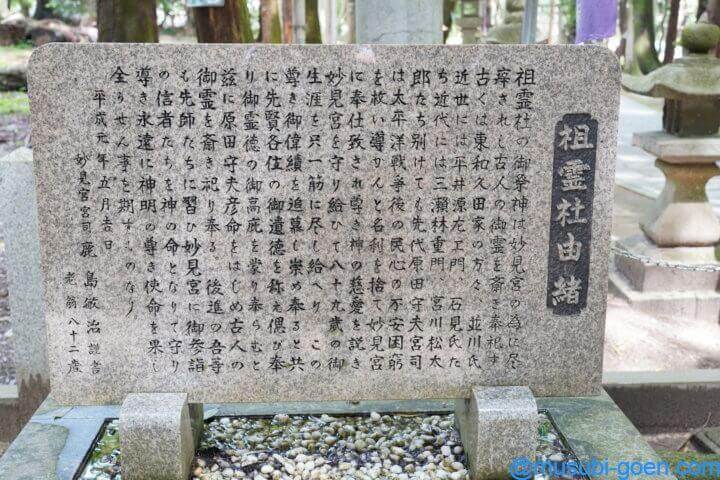 祖霊社由緒
祖霊社の御祭神は妙見宮の為に尽
瘁されし古人の御霊を斎き奉祀す
古くは東和久田家の方々、並川氏
近世には平井源左ヱ門、石見氏た
ち近代には三瀬林重門、宮川松太
郎たち別けても先代原田守夫宮司
は太平洋戦争後の民心の不安困窮
を救い導りんと名利を捨て妙見宮
に奉仕致され尊き神の慈愛を説き
妙見宮を守り給ひて八十九歳の御
生涯を只一筋に尽し給へり この
尊き御偉績を追慕し崇め奉ると共
に先賢各位の御遺徳を称え偲び奉
り御霊徳の御高庇を蒙り奉らむと
茲に原田守夫彦命をはじめ古人の
御霊を斎き祀り奉る 後進の吾等
も先師たちに習ひ妙見宮に御参詣
の信者たちを神の命となりて守り
導き永遠に神明の尊き使命を果し
全うせん事を期するものなり
平成元年五月吉日
妙見宮宮司鹿島敏治謹書
老翁八十二歳
@musubi-goen.com